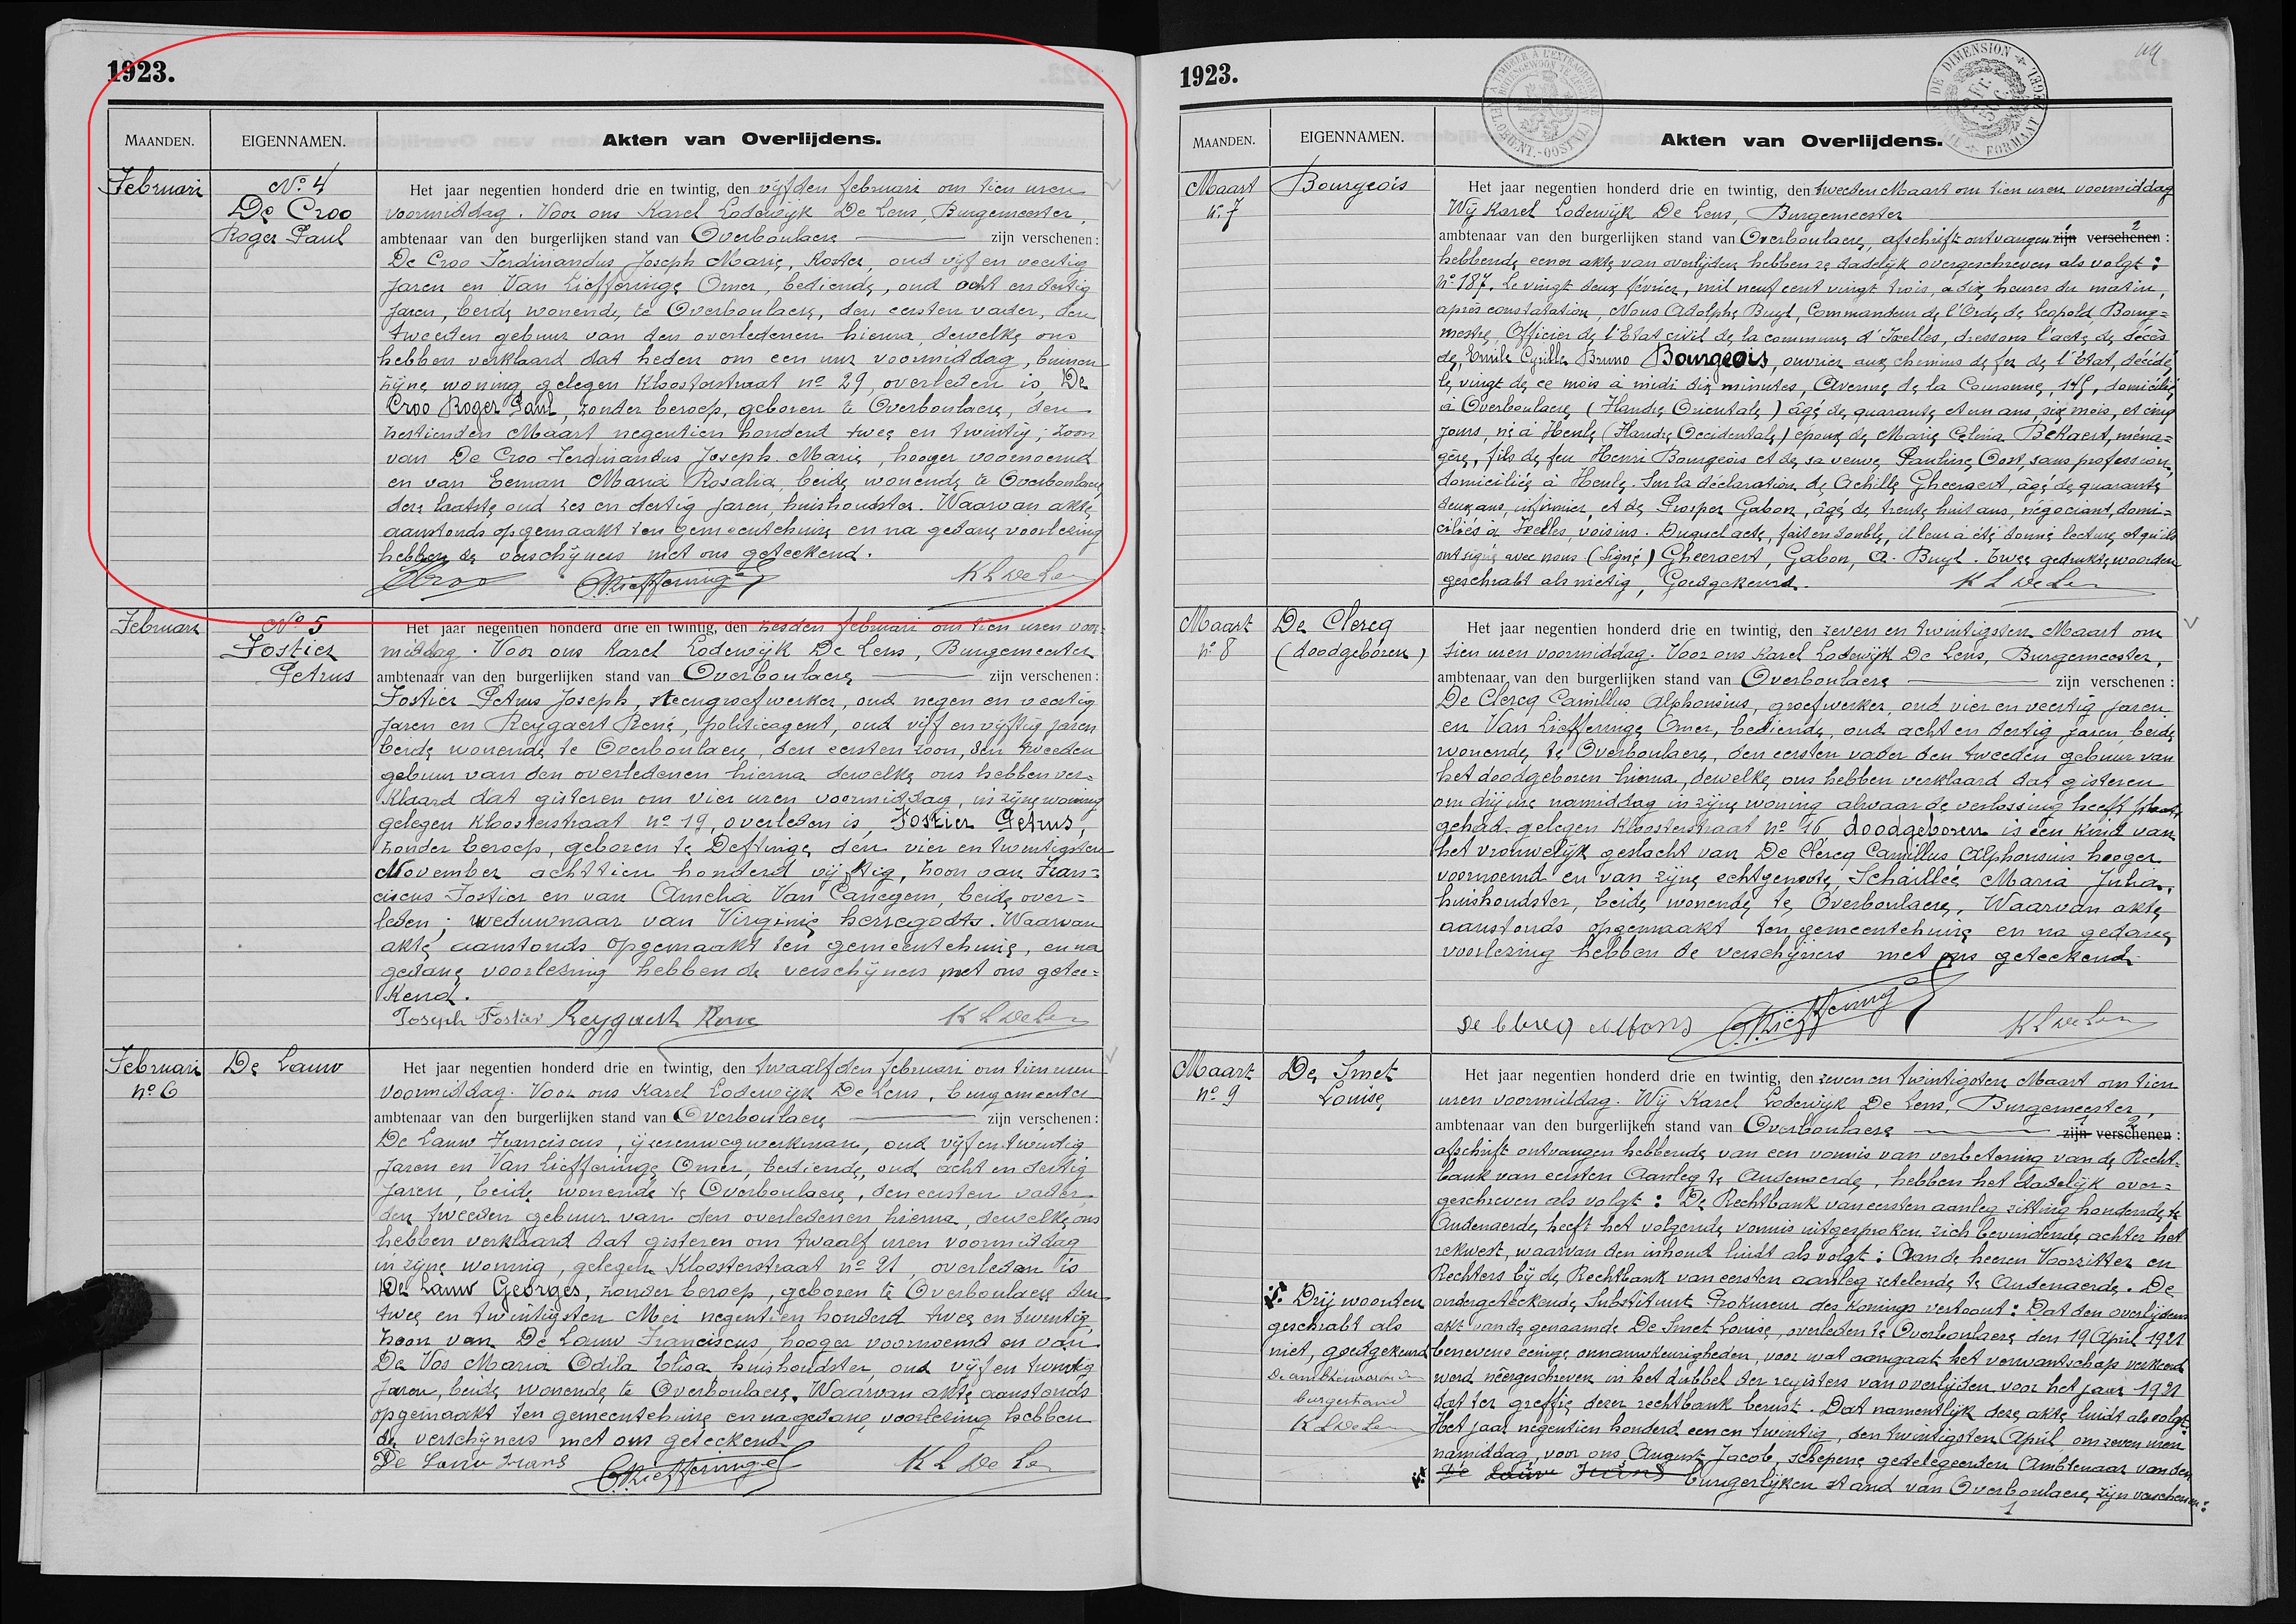 1923.
MAANDEN.
EIGENNAMEN.
Akten van Overlijdens.
Februari
No 4
De Croo
Roger Paul
Het jaar negentien honderd drie en twintig, den vijfden februari om tien uren
voormiddag. Voor ons Karel Lodewijk De Lens, Burgemeester,
ambtenaar van den burgerlijken stand van Overboulaere zijn verschenen:
De Croo Ferdinandus Joseph Marie, Koster, oud vijf en veertig
jaren en Van Liefferinge Omer, bediende, oud acht en dertig
jaren, beide wonende te Overboulaere, den eersten vader, den
tweeden gebuur van den overledenen hierna, dewelke ons
hebben verklaard dat heden om een uur voormiddag, binnen
zijne woning gelegen Kloosterstraat no 29, overleden is, De
Croo Roger Paul, zonder beroep, geboren te Overboulaere, den
zestienden Maart negentien honderd twee en twintig; zoon
van De Croo Ferdinandus Joseph Marie, hooger voornoemd
en van Eeman Maria Rosalia, beide wonende te Overboulaere
dere laatste oud zes en dertig jaren, huishoudster. Waarvan akte
aanstonds opgemaakt ten gemeentehuize en na gedane voorlezing
hebben de verschijners met ons geteekend.
DCroo O.VLiefferinge K L De Len
Februari
No 5
Fostier
Petrus
Het jaar negentien honderd drie en twintig, den zesden februari om tien uren voor=
middag. Voor ons Karel Lodewijk De Lens, Burgemeester
ambtenaar van den burgerlijken stand van Overboulaere zijn verschenen:
Fostier Petrus Joseph, steengroefwerker, oud negen en veertig
jaren en Reygaert René, politieagent, oud vijf en vijftig jaren
beide wonende te Overboulaere, den eersten zoon, den tweeden
gebuur van den overledenen hierna dewelke ons hebben ver=
klaard dat gisteren om vier uren voormiddag, in zijne woning
gelegen Kloosterstraat no 19, overleden is, Fostier Petrus,
zonder beroep, geboren te Deftinge den vier en twintigsten
November achttien honderd vijftig, zoon van Fran=
ciscus Fostier en van Amelia Van Canegem, beide over=
leden; weduwnaar van Virginie herregodts. Waarvan
akte aanstonds opgemaakt ten gemeentehuize, en na
gedane voorlezing hebben de verschijners met ons getee=
kend.
Joseph Fostier Reygaert Rene K L De Len
Februari
no 6
De Lauw
Het jaar negentien honderd drie en twintig, den twaalfden februari om tien uren
voormiddag. Voor ons Karel Lodewijk De Lens, burgemeester
ambtenaar van den burgerlijken stand van Overboulaere zijn verschenen:
De Lauw Franciscus, ijzerenwegwerkman, oud vijf en twintig
jaren en Van Liefferinge Omer, bediende, oud acht en dertig
jaren, beide wonende te Overboulaere, den eersten vader
den tweeden gebuur van den overledenen hierna, dewelke ons
hebben verklaard dat gisteren om twaalf uren voormiddag
in zijne woning, gelegen Kloosterstraat no 21, overleden is
De Lauw Georges, zonder beroep, geboren te Overboulaere den
twee en twintigsten Mei negentien honderd twee en twintig,
zoon van De Lauw Franciscus, hooger voornoemd en van
De Vos Maria Odila Elisa, huishoudster, oud vijf en twintig
jaren, beide wonende te Overboulaere. Waarvan akte aanstonds
opgemaakt ten gemeentehuize en na gedane voorlezing hebben
de verschijners met ons geteekend
De Lauw Frans O.VLiefferinge K L De Le
1923.
MAANDEN.
EIGENNAMEN.
Akten van Overlijdens.
Maart
n. 7
Bourgeois
Het jaar negentien honderd drie en twintig, den tweeden Maart om tien uren voormiddag
Wij Karel Lodewijk De Lens, Burgemeester
ambtenaar van den burgerlijken stand van Overboulaere, afschrift ontvangen zijn verschenen:
hebbende eener akte van overlijden hebben ze dadelijk overgeschreven als volgt:
no 187. Le vingt deux février, mil neuf cent vingt trois, à dix heures du matin,
après constatation, Nous Adolphe Buyl, Commandeur de l'Ordre de Leopold, Bourg=
mestre, Officier de l'Etat civil de la commune d'Ixelles, dressons l'acte de décès
de, Emile Cyrille Bruno Bourgeois, ouvrier aux chemins de fer de l'état, décédé
le vingt de ce mois à midi dix minutes, Avenue de la Couronne, 145, domicilié
à Overboulaere (Flandre Orientale) âgé de quarante et un ans, six mois, et cinq
jours, né à Heule (Flandre Occidentale) époux de Marie Celina Bekaert, ména=
gère, fils de feu Henri Bourgeois et de sa veuve Pauline Oost, sans profession,
domiciliée à Heule. Sur la déclaration de Achille Gheeraert, âgé de quarante
deux ans, infirmier, et de Prosper Gabon, âgé de trente huit ans, negociant, domi=
ciliés à Ixelles, voisins. Duquel acte, fait en double, il leur a été donné lecture et qu'ils
ont signé avec nous (Signé) Gheeraert, Gabon, A. Buyl. twee gedrukte woorden
geschrabt als nietig, Goedgekeurd. K L De Le
Maart
no 8
De Clercq
(doodgeboren)
Het jaar negentien honderd drie en twintig, den zeven en twintigsten Maart om
tien uren voormiddag. Voor ons Karel Lodewijk De Lens, Burgemeester,
ambtenaar van den burgerlijken stand van Overboulaere zijn verschenen:
De Clercq Camillus Alphonsius, groefwerker, oud vier en veertig jaren
en Van Liefferinge Omer, bediende, oud acht en dertig jaren, beide
wonende te Overboulaere, den eersten vader den tweeden gebuur van
het doodgeboren hierna, dewelke ons hebben verklaard dat gisteren
om drij ure namiddag in zijne woning alwaar de verlossing heeft plaats
gehad, gelegen Kloosterstraat no 16 doodgeboren is een kind van
het vrouwelijk geslacht van De Clercq Camillus Alphonsius hooger
voornoemd en van zijne echtgenoote, Schaillée Maria Julia,
huishoudster, beide wonende te Overboulaere, Waarvan akte
aanstonds opgemaakt ten gemeentehuize en na gedane
voorlezing hebben de verschijners met ons geteekend
De Clercq Alfons O.VLiefferinge K L De Len
Maart
no 9
De Smet
Louise
Het jaar negentien honderd drie en twintig, den zeven en twintigsten Maart om tien
uren voormiddag. Wij Karel Lodewijk De Lens, Burgemeester,
ambtenaar van den burgerlijken stand van Overboulaere zijn verschenen:
afschrift ontvangen hebbende van een vonnis van verbetering van de Recht=
bank van eersten Aanleg te Audenaerde, hebben het dadelijk over=
geschreven als volgt: De Rechtbank van eersten aanleg zitting houdende te
Audenaerde, heeft het volgende vonnis uitgesproken zich bevindende achter het
rekwest, waarvan den inhoud luidt als volgt: Aan de heeren Voorzitter en
Rechters bij de Rechtbank van eersten aanleg zetelende te Audenaerde. De
ondergeteekende Substituut Prokureur des Konings vertoont: Dat den overlijdens
akt van de genaamde De Smet Louise, overleden te Overboulaere den 19 April 1921
benevens eenige onnauwkeurigheden, voor wat aangaat het verwantschap verkeerd
werd neergeschreven in het dubbel der registers van overlijden voor het jaar 1921
dat ter greffie dezer rechtbank berust. Dat namentlijk deze akte luidt als volgt:
Het jaar negentien honderd een en twintig, den twintigsten April om zeven uren
namiddag, voor ons August Jacob, schepene gedelegeerden Ambtenaar van den
De Lauw Frans burgerlijken stand van Overboulaere, zijn verschenen:
Drij woorden
geschrabt als
niet, goedgekeurd
De ambtenaar van den
burgerstand
K L De Len